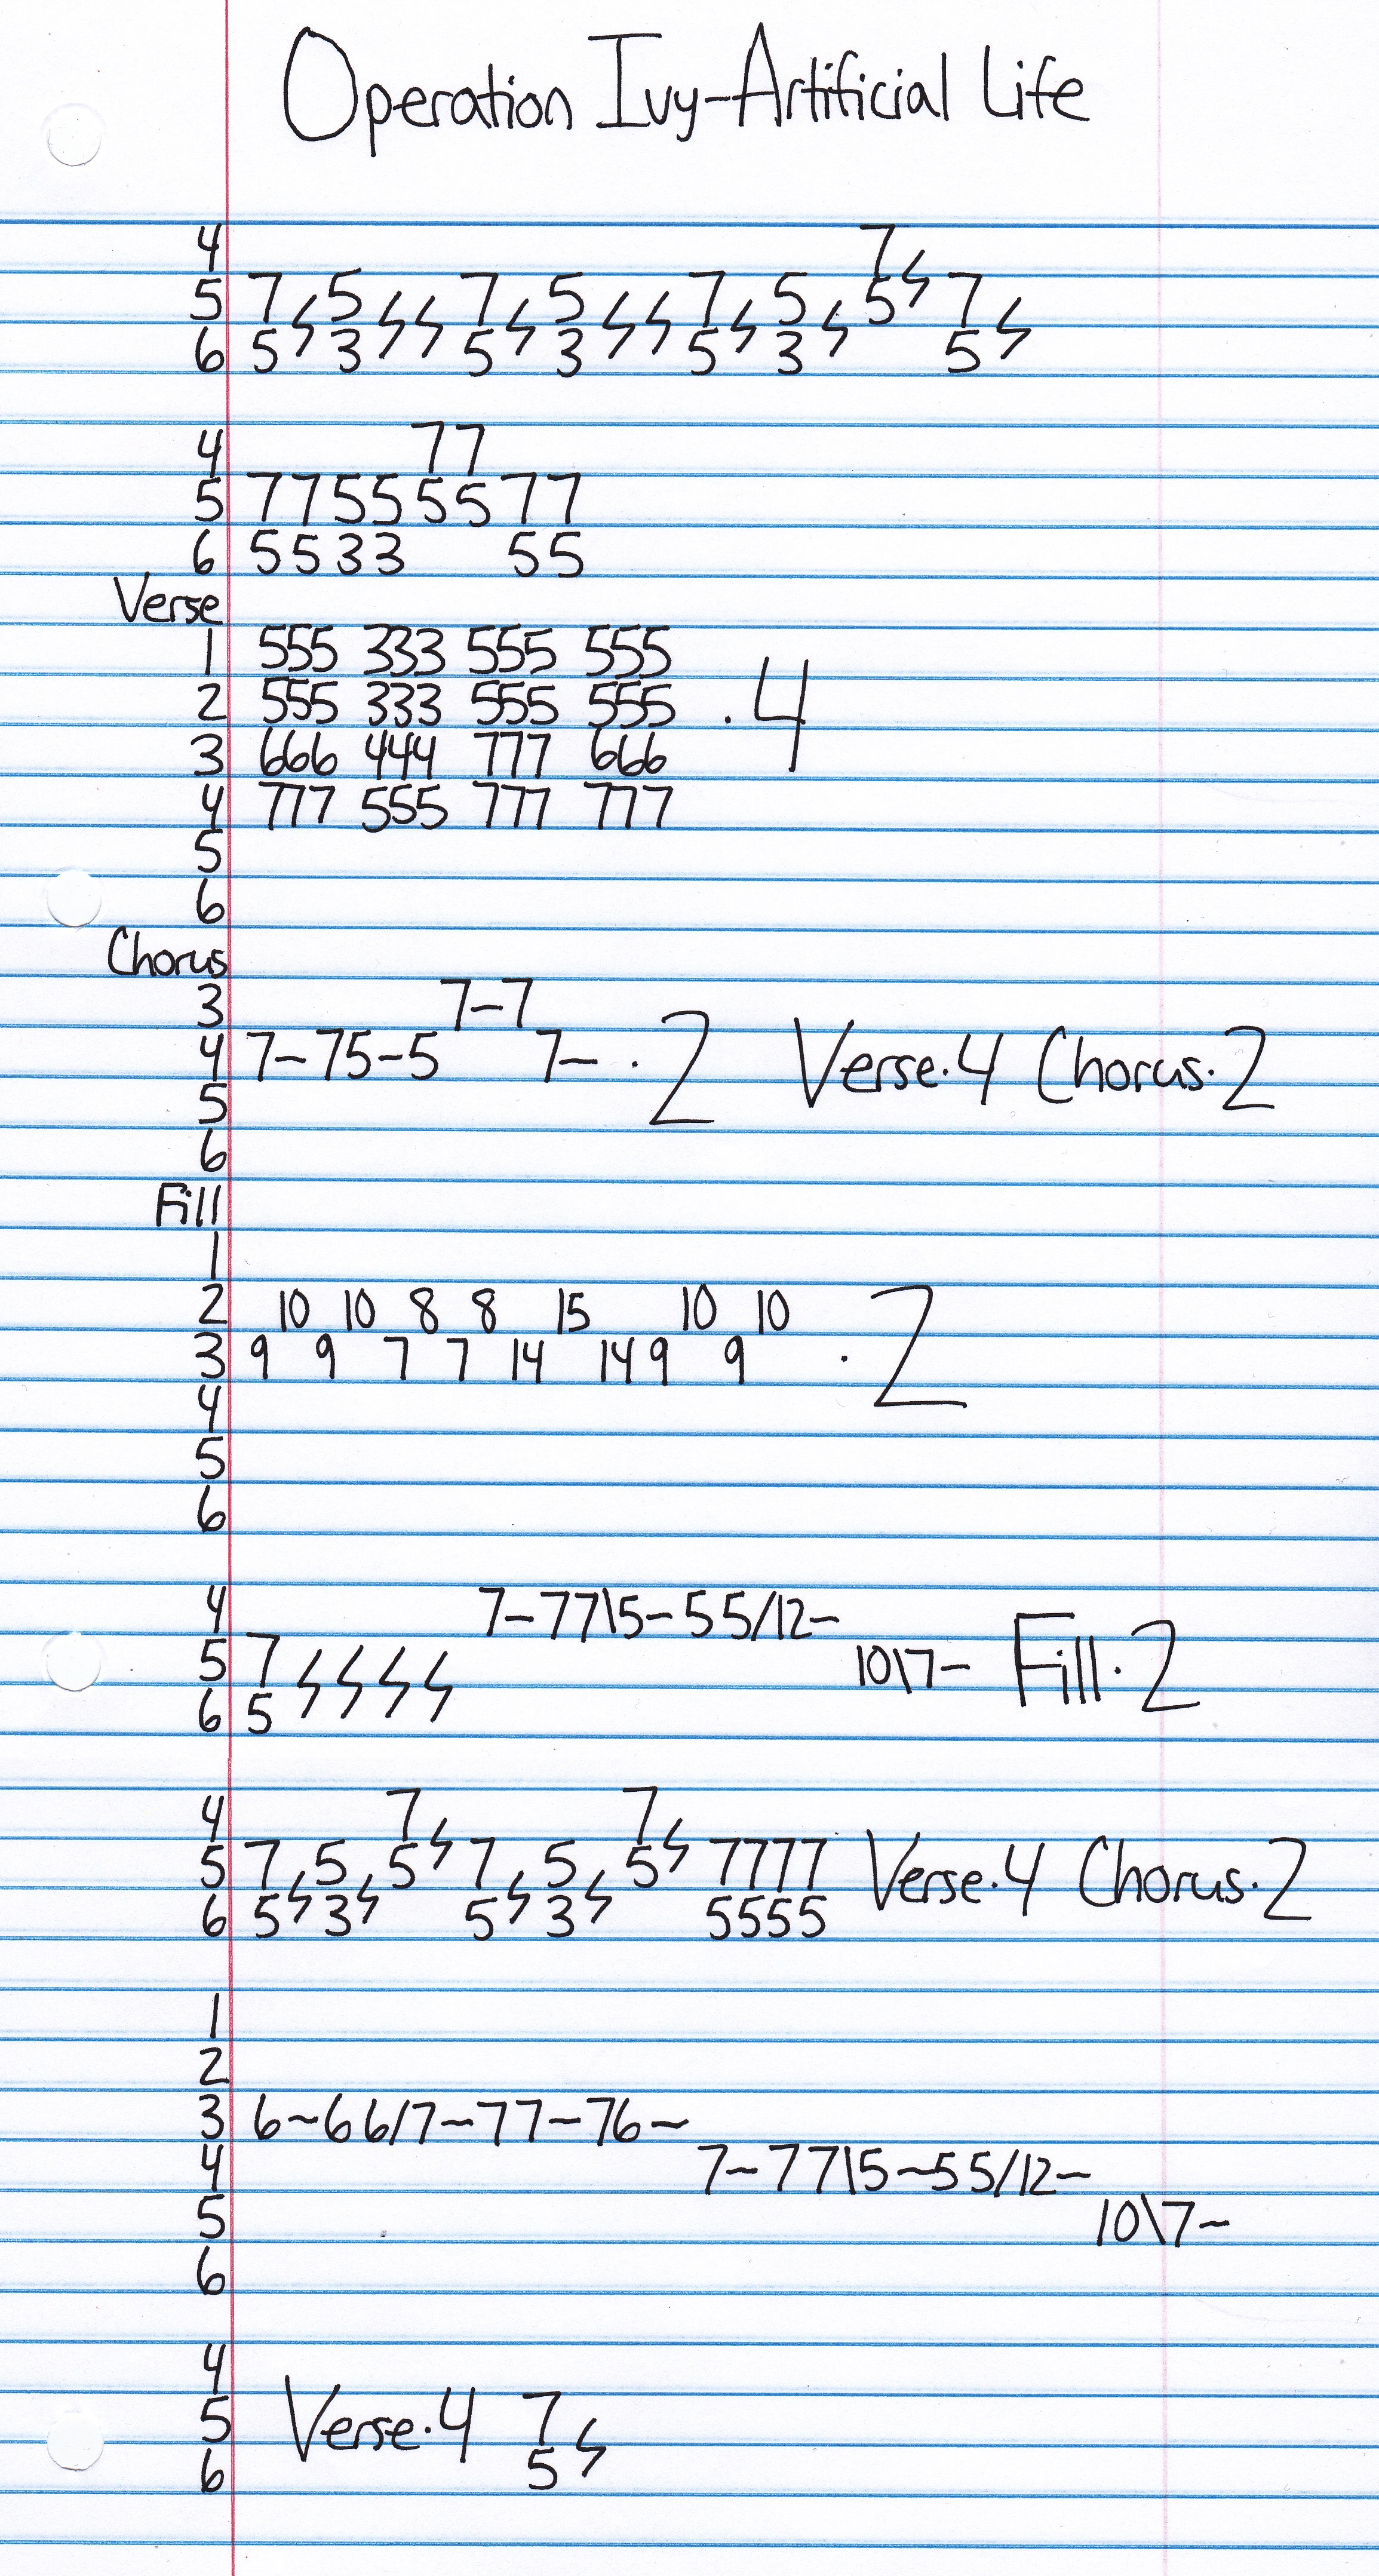 Operation Ivy-Artificial Life
4 7 ϟ
5 7 ϟ 5 ϟ ϟ 7 ϟ 5 ϟ ϟ 7 ϟ 5 ϟ 5 7 ϟ
6 5 3 5 3 5 3 5
4 77
5 77555577
6 5533 55
Verse
1 555 333 555 555
2 555 333 555 555 .4
3 666 444 777 666
4 777 555 777 777
5
6
Chorus
3 7-7
4 7-75-5 7- .2 Verse.4 Chorus.2
5
6
Fill
1
2 10 10 8 8 15 10 10
3 9 9 7 7 14 14 9 9 .2
4
5
6
4 7-77\5-55/12-
5 7 ϟ ϟ ϟ ϟ 10\7- Fill.2
6 5
4 7 ϟ 7 ϟ
5 7 ϟ 5 ϟ 5 7 ϟ 5 ϟ 5 7777 Verse.4 Chorus.2
6 5 3 5 3 5555
1
2
3 6~66/7~77-76~
4 7-77\5~55/12-
5 10\7-
6
4
5 Verse.4 7 ϟ
6 5